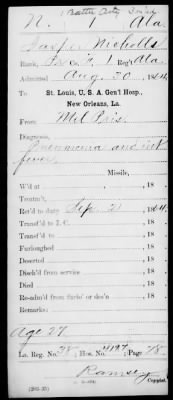 N. 1 Ala
Nicholls
Rank, Pvt. F, 1 Reg't Ala.
Admitted Aug. 30, 1864,
To St. Louis, U. S. A. Gen'l Hosp.,
New Orleans, La.
From Mil Pris.
Diagnosis,
Pneumonia and int
fever.
Missile,
W'd at , 18
Treatm't,
Ret'd to duty Sep. 2, 1864.
Transf'd to I. C. , 18
Transf'd to , 18
Furloughed , 18
Deserted , 18
Disch'd from service , 18
Died , 18
Re-adm'd from furlo' or des'n , 18
Remarks:
Age 27.
La. Reg. No. 78; Hos. No. ; Page 78
Ramsey
Copyist.